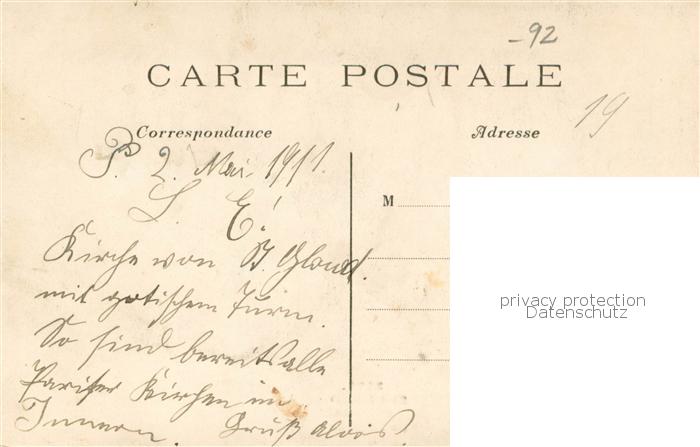 -92
CARTE POSTALE
19
Correspondance
Adresse
P. 2. Mai 1911.
L. E!
M
Kirche von St. Cloud.
mit gotischem Turm.
So sind bereits alle
Pariser Kirchen im
Innern. Gruß Alois.
privacy protection
Datenschutz